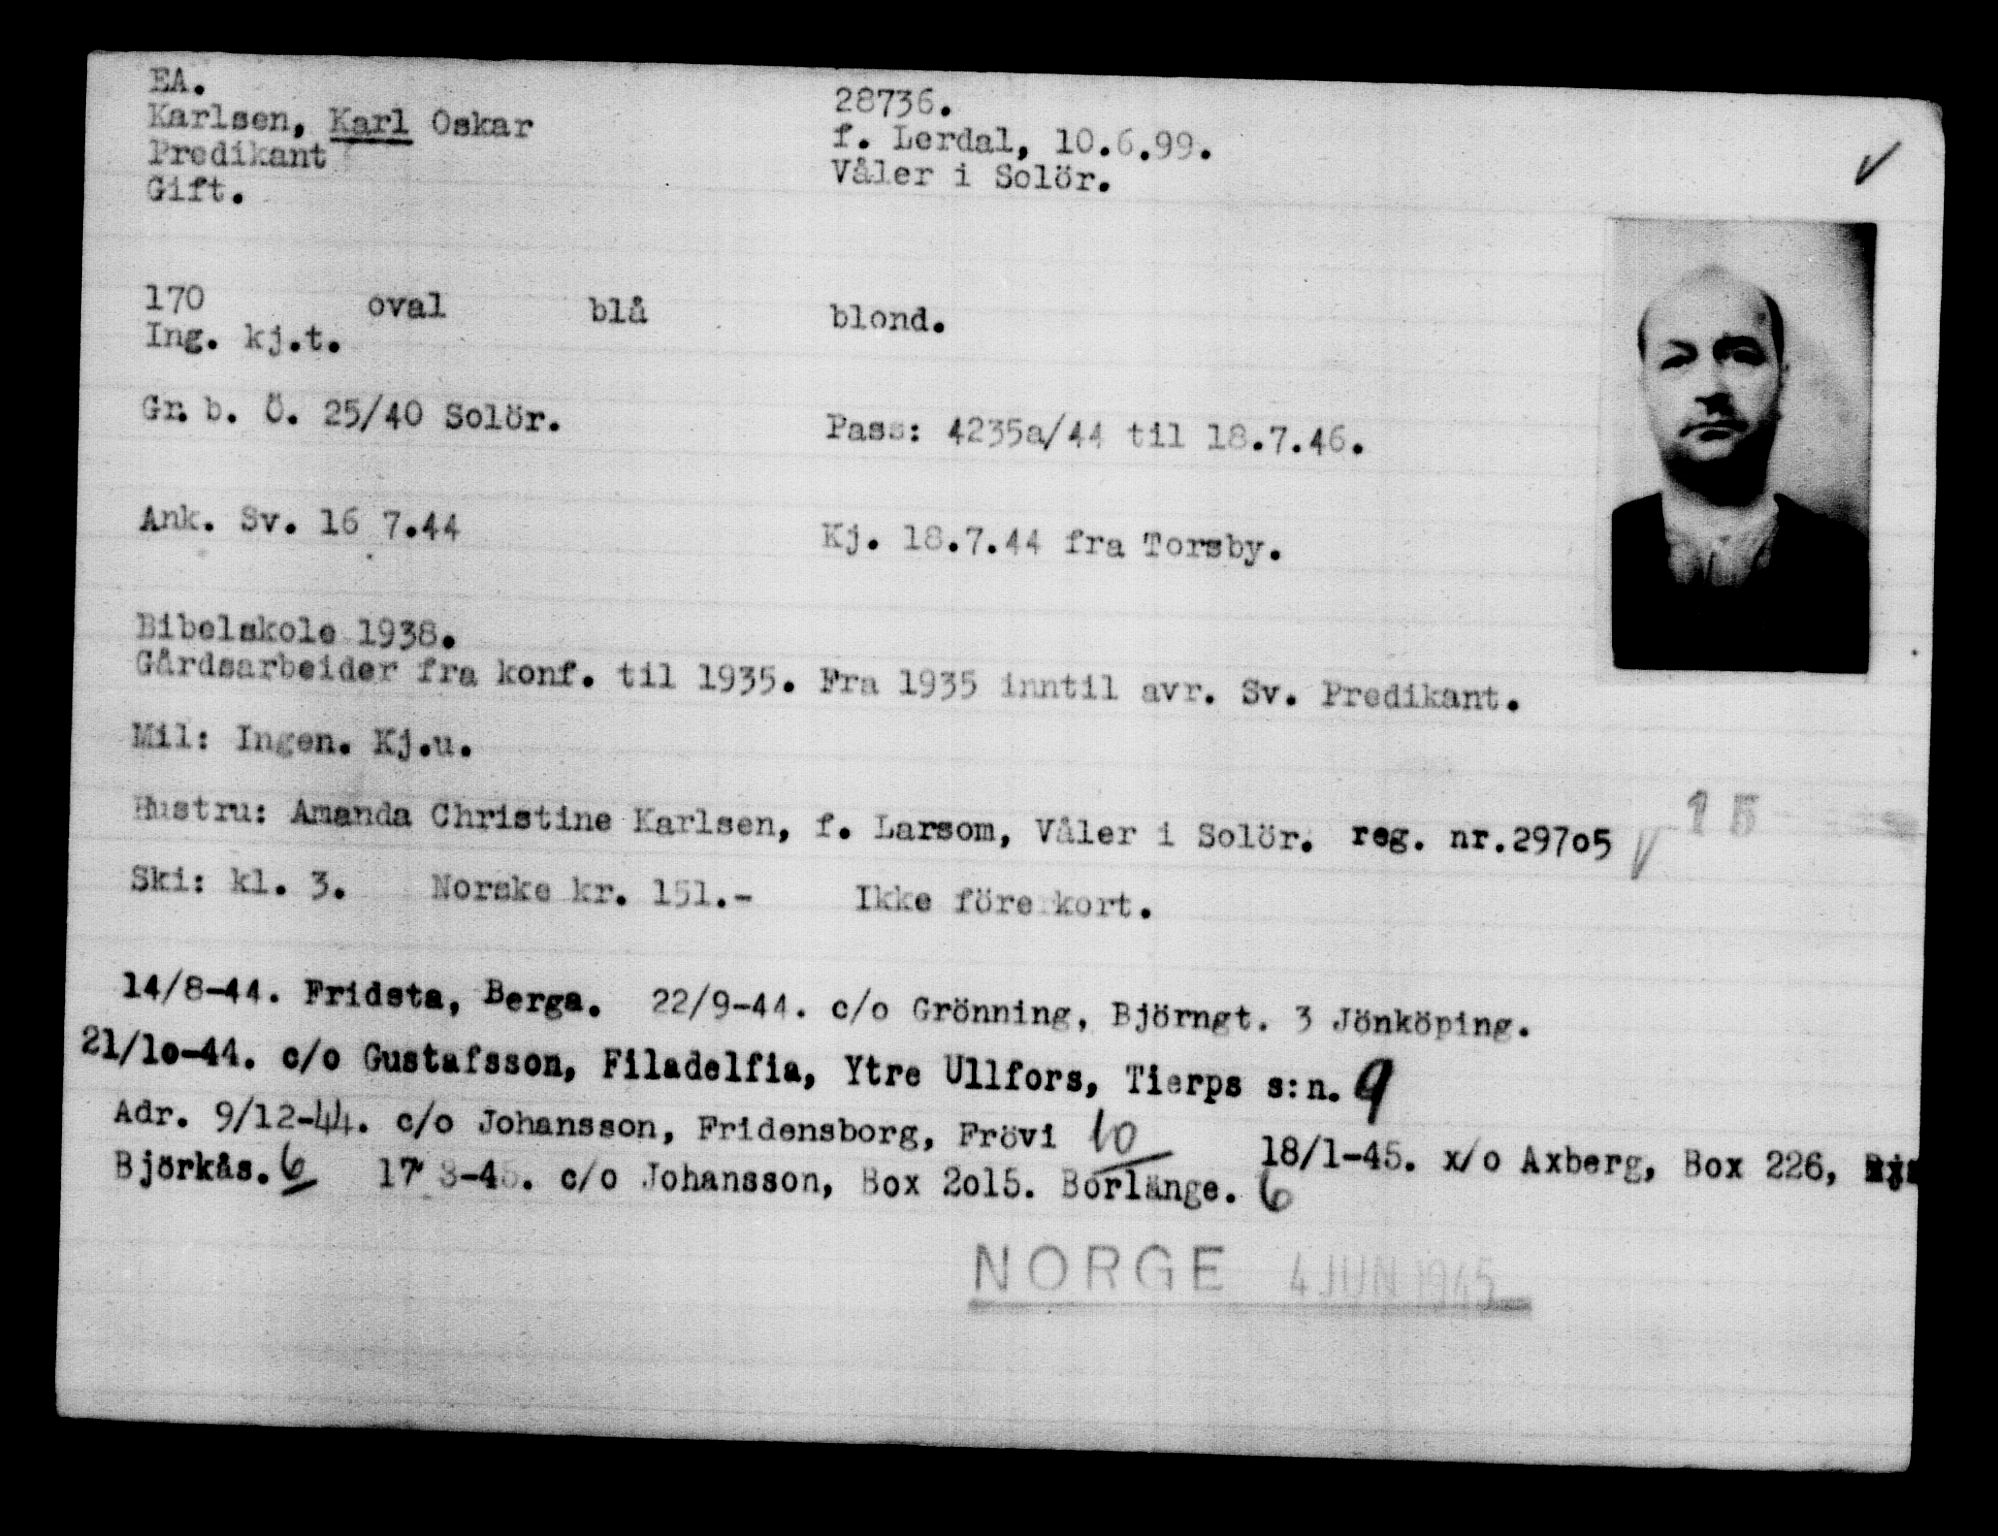 EA. 28736.
Karlsen, Karl Oskar f. Lerdal, 10.6.99.
Predikant Våler i Solör.
Gift.
170 oval blå blond.
Ing. kj.t.
Gr. b. Ö. 25/40 Solör. Pass: 4235a/44 til 18.7.46.
Ank. Sv. 16 7.44 Kj. 18.7.44 fra Torsby.
Bibelskole 1938.
Gårdsarbeider fra konf. til 1935. Fra 1935 inntil avr. Sv. Predikant.
Mil: Ingen. Kj.u.
Hustru: Amanda Christine Karlsen, f. Larsom, Våler i Solör. reg. nr.297o5 15
Ski: kl. 3. Norske kr. 151.- Ikke förerkort.
14/8-44. Fridsta, Berga. 22/9-44. c/o Grönning, Björngt. 3 Jönköping.
21/1o-44. c/o Gustafsson, Filadelfia, Ytre Ullfors, Tierps s:n. 9
Adr. 9/12-44. c/o Johansson, Fridensborg, Frövi 10 18/1-45. x/o Axberg, Box 226,
Björkås. 6 17 3-45. c/o Johansson, Box 2o15. Borlänge. 6
NORGE 4 JUN 1945